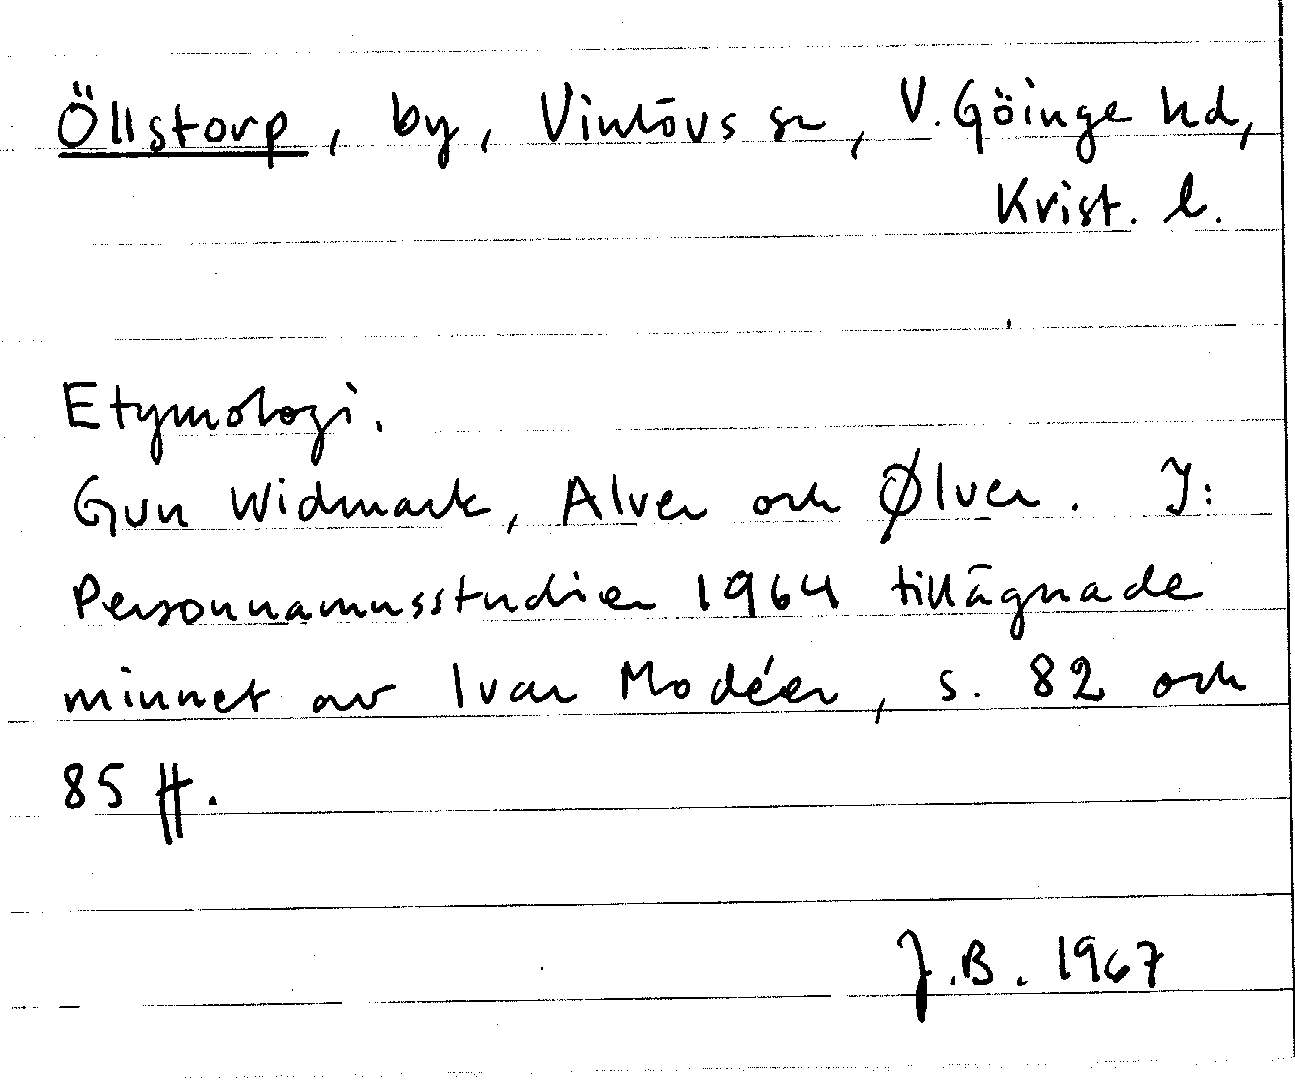 Öllstorp, by, Vinlövs sn, V. Göinge hd,
Krist. l.
Etymologi.
Gun Widmark, Alver och Ølver. I:
Personnamnsstudier 1964 tillägnade
minnet av Ivar Modéer, s. 82 och
85 ff.
J.B. 1967